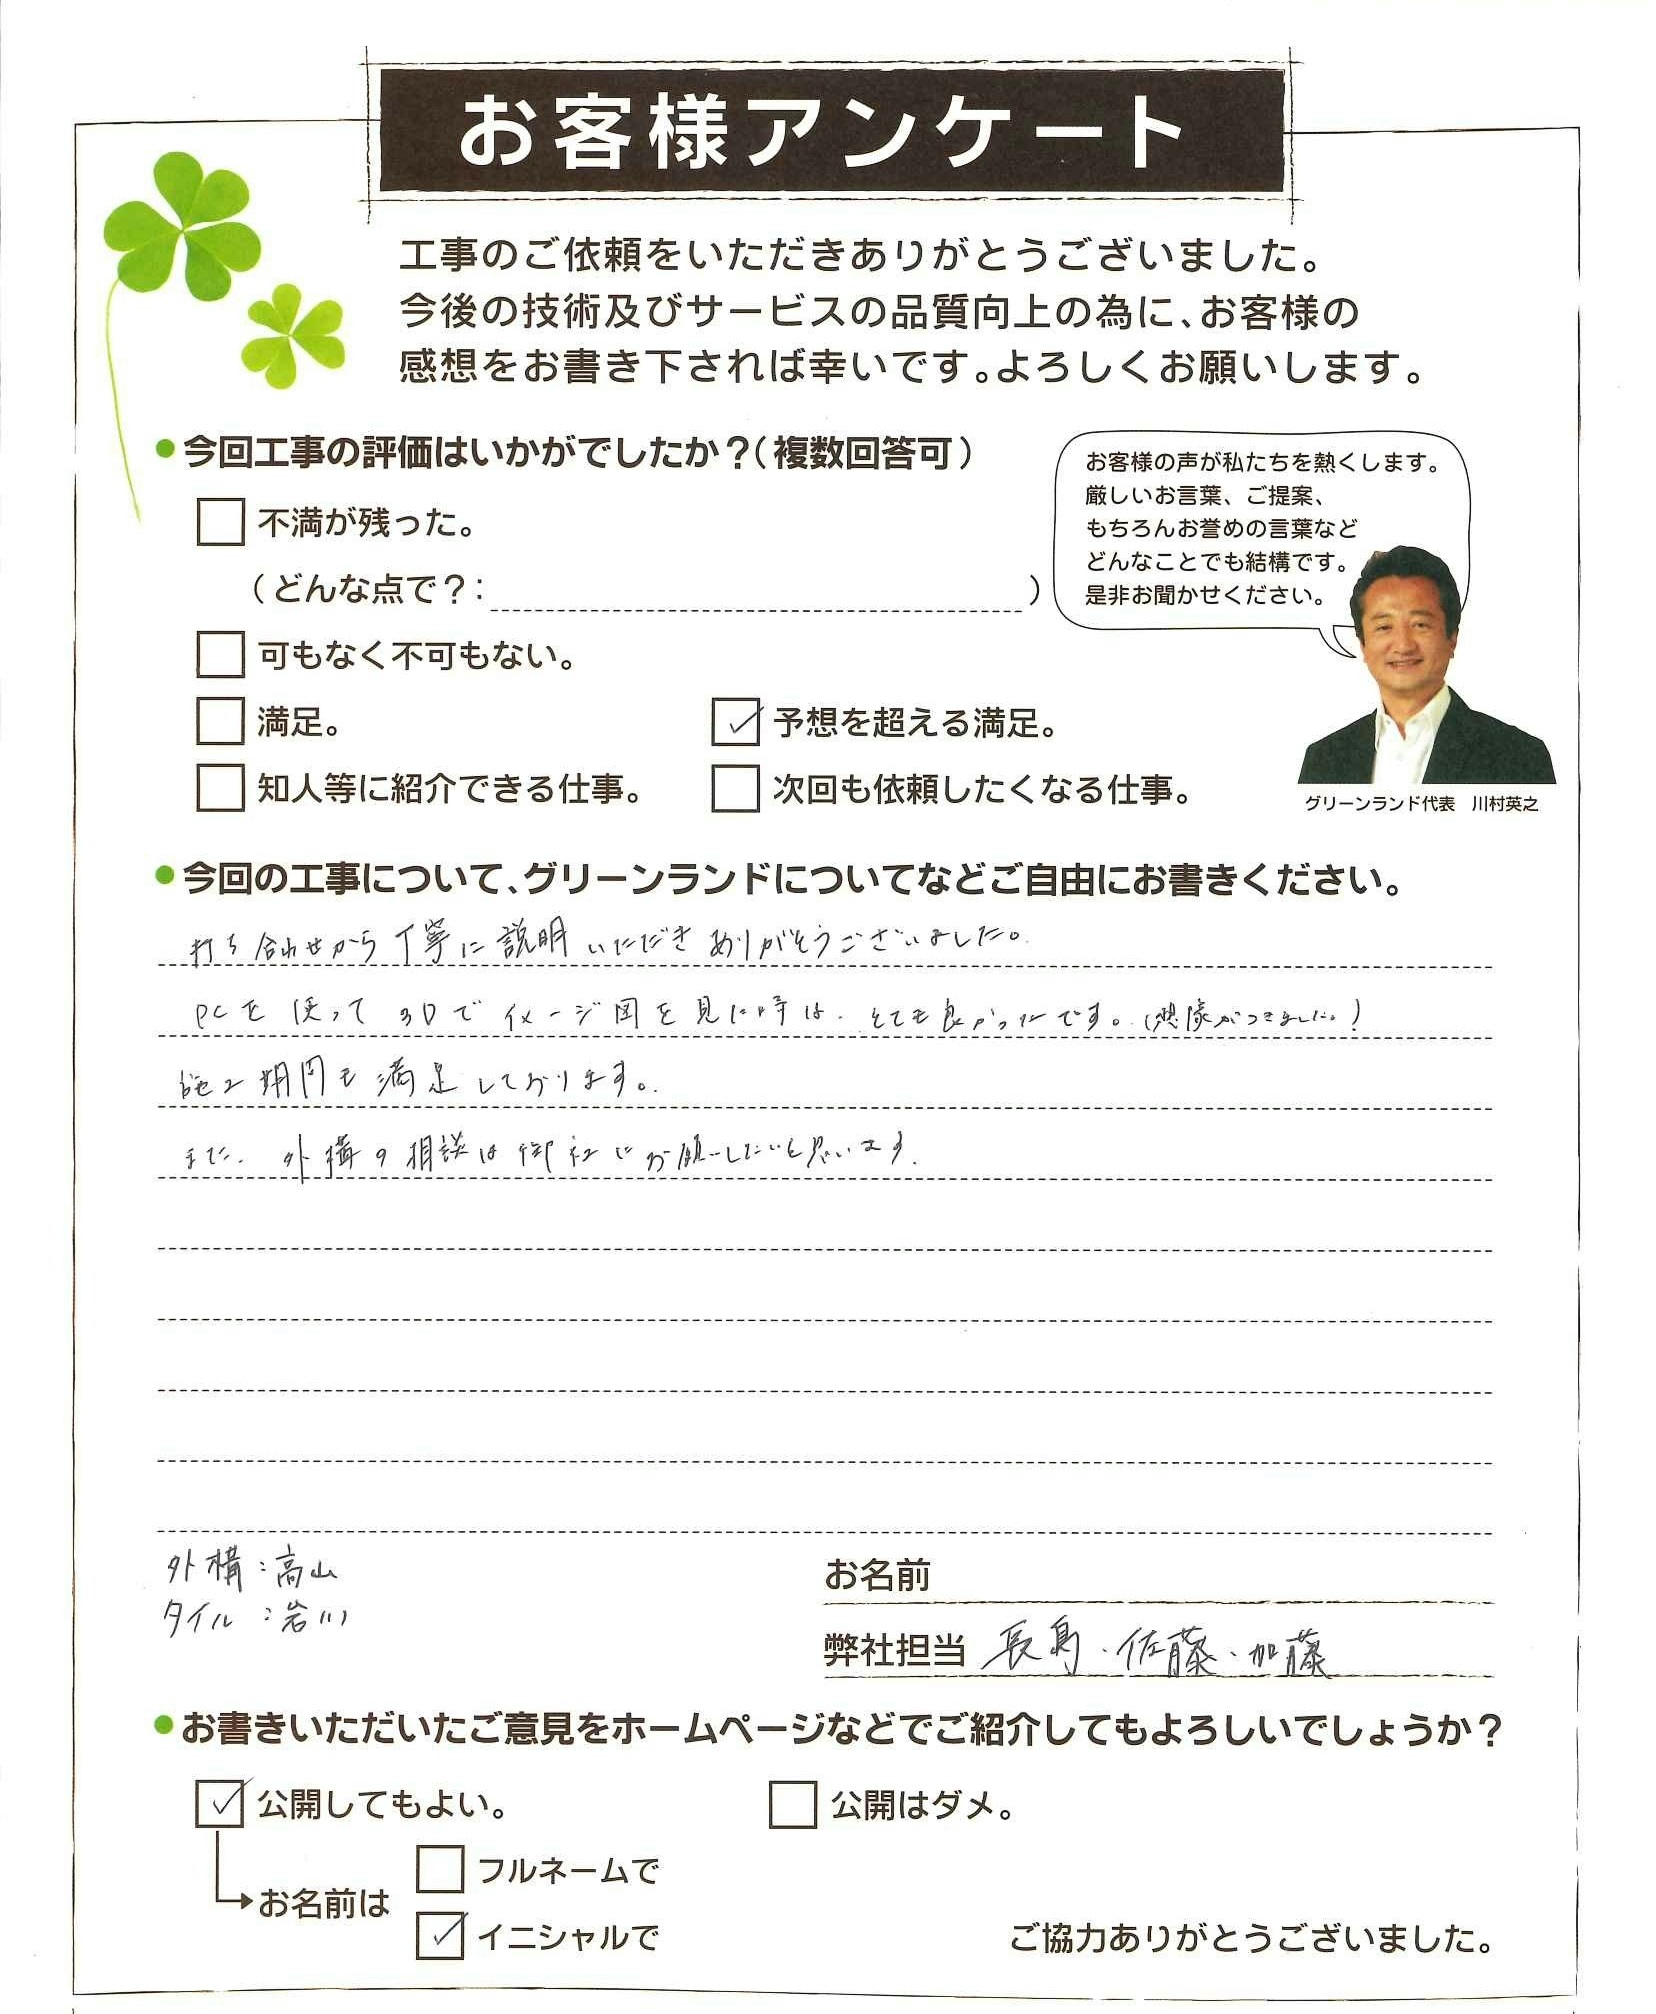 お客様アンケート
工事のご依頼をいただきありがとうございました。
今後の技術及びサービスの品質向上の為に、お客様の
感想をお書き下されば幸いです。よろしくお願いします。
●今回工事の評価はいかがでしたか？（複数回答可）
不満が残った。
（どんな点で？：　）
可もなく不可もない。
満足。
✓予想を超える満足。
知人等に紹介できる仕事。
次回も依頼したくなる仕事。
お客様の声が私たちを熱くします。
厳しいお言葉、ご提案、
もちろんお誉めの言葉など
どんなことでも結構です。
是非お聞かせください。
グリーンランド代表　川村英之
●今回の工事について、グリーンランドについてなどご自由にお書きください。
打ち合わせから丁寧に説明いただきありがとうございました。
PCを使って3Dでイメージ図を見た時は、とても良かったです。(想像がつきました。)
施工期間も満足しております。
また、外構の相談は御社にお願いしたいと思います。
外構：高山
タイル：岩川
お名前
弊社担当 長島・佐藤・加藤
●お書きいただいたご意見をホームページなどでご紹介してもよろしいでしょうか？
✓公開してもよい。
公開はダメ。
お名前は
フルネームで
✓イニシャルで
ご協力ありがとうございました。